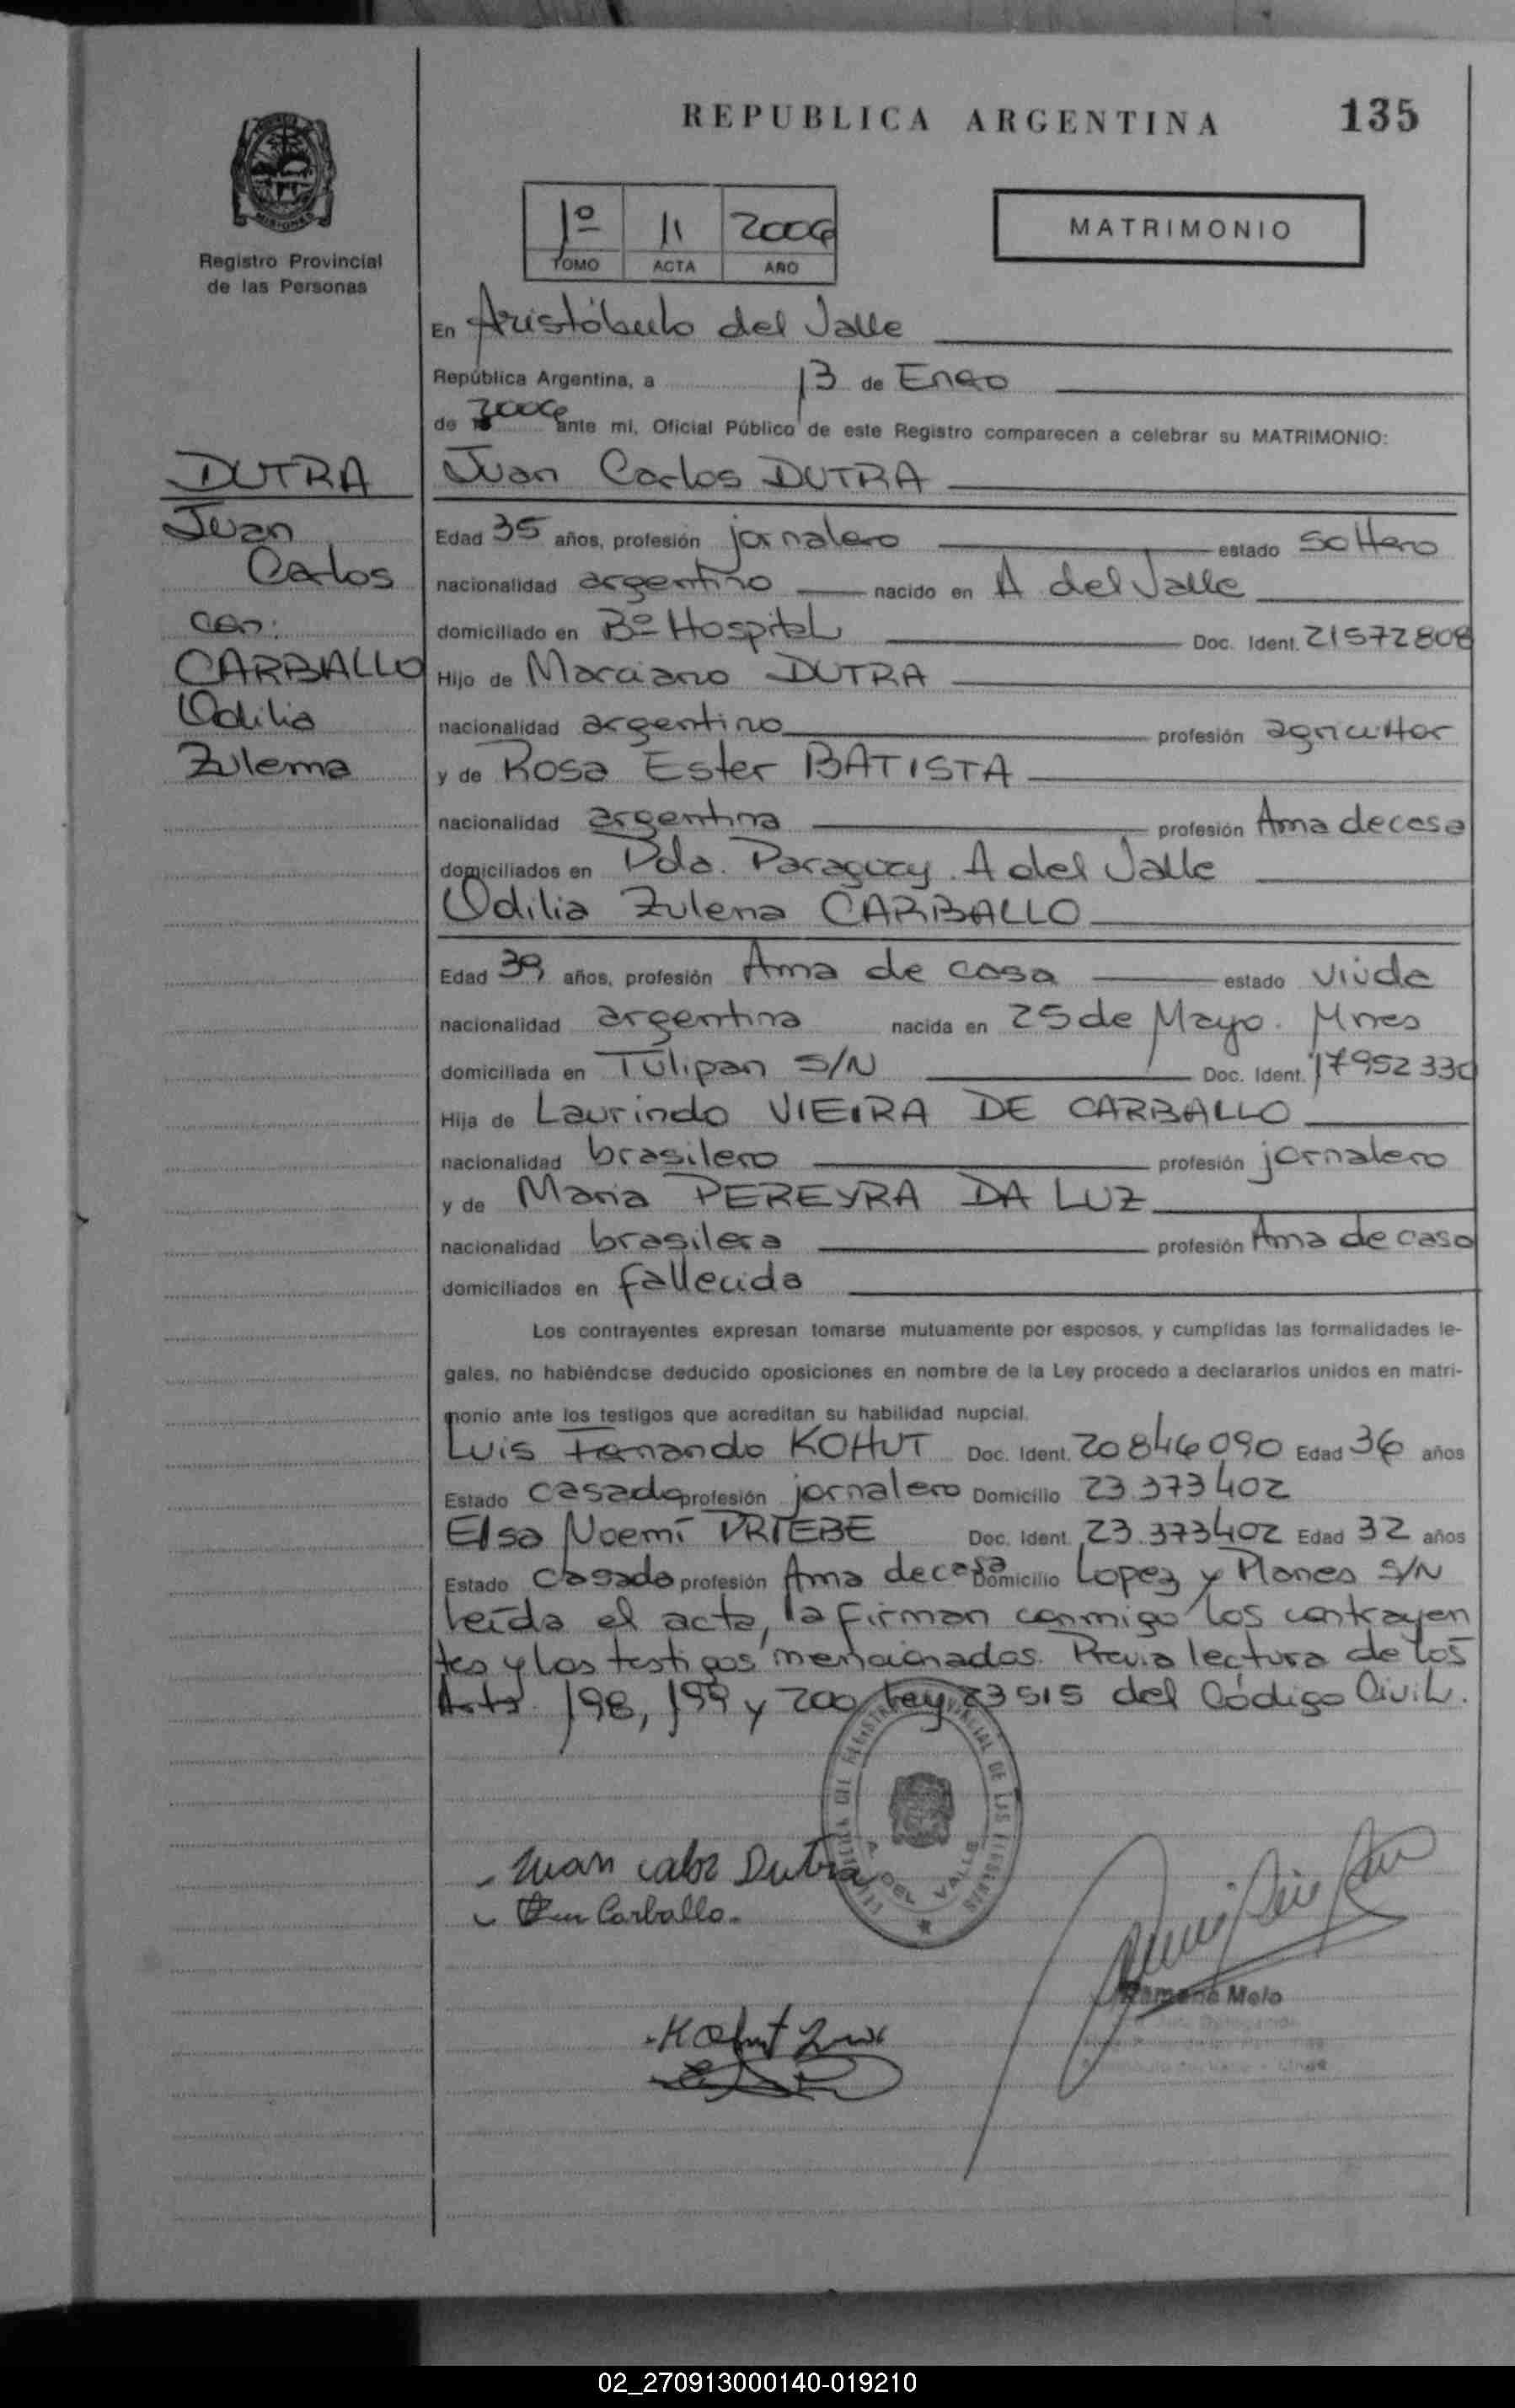 REPUBLICA ARGENTINA
135
MISIONES
Registro Provincial
de las Personas
1º 11 2006
TOMO ACTA AÑO
MATRIMONIO
En Aristóbulo del Valle
República Argentina, a 13 de Enero
de 2006 ante mi, Oficial Público de este Registro comparecen a celebrar su MATRIMONIO:
DUTRA
Juan
Carlos
con:
CARBALLO
Odilia
Zulema
Juan Carlos DUTRA
Edad 35 años, profesión jornalero estado soltero
nacionalidad argentino nacido en A del Valle
domiciliado en Bº Hospital Doc. Ident. 21572808
Hijo de Marciano DUTRA
nacionalidad argentino profesión agricultor
y de Rosa Ester BATISTA
nacionalidad argentina profesión Ama de casa
domiciliados en Pdo. Paraguay. A del Valle
Odilia Zulema CARBALLO
Edad 39 años, profesión Ama de casa estado viuda
nacionalidad argentina nacida en 25 de Mayo. Mnes
domiciliada en Tulipan S/N Doc. Ident. 17952330
Hija de Laurindo VIEIRA DE CARBALLO
nacionalidad brasilero profesión jornalero
y de Maria PEREYRA DA LUZ
nacionalidad brasilera profesión Ama de casa
domiciliados en fallecida
Los contrayentes expresan tomarse mutuamente por esposos, y cumplidas las formalidades le-
gales, no habiéndose deducido oposiciones en nombre de la Ley procedo a declararlos unidos en matri-
monio ante los testigos que acreditan su habilidad nupcial.
Luis Fernando KOHUT Doc. Ident. 20846090 Edad 36 años
Estado casado profesión jornalero Domicilio 23.373402
Elsa Noemí PRIEBE Doc. Ident. 23.373402 Edad 32 años
Estado casada profesión Ama de casa Domicilio Lopez y Planes S/N
Leída el acta, la firman conmigo los contrayen
tes y los testigos mencionados. Previa lectura de los
Arts. 198, 199 y 200 Ley 23515 del Código Civil.
A. DEL VALLE
Juan calos Dutra
Carballo.
Kohut Luis
Ramona Melo
02_270913000140-019210